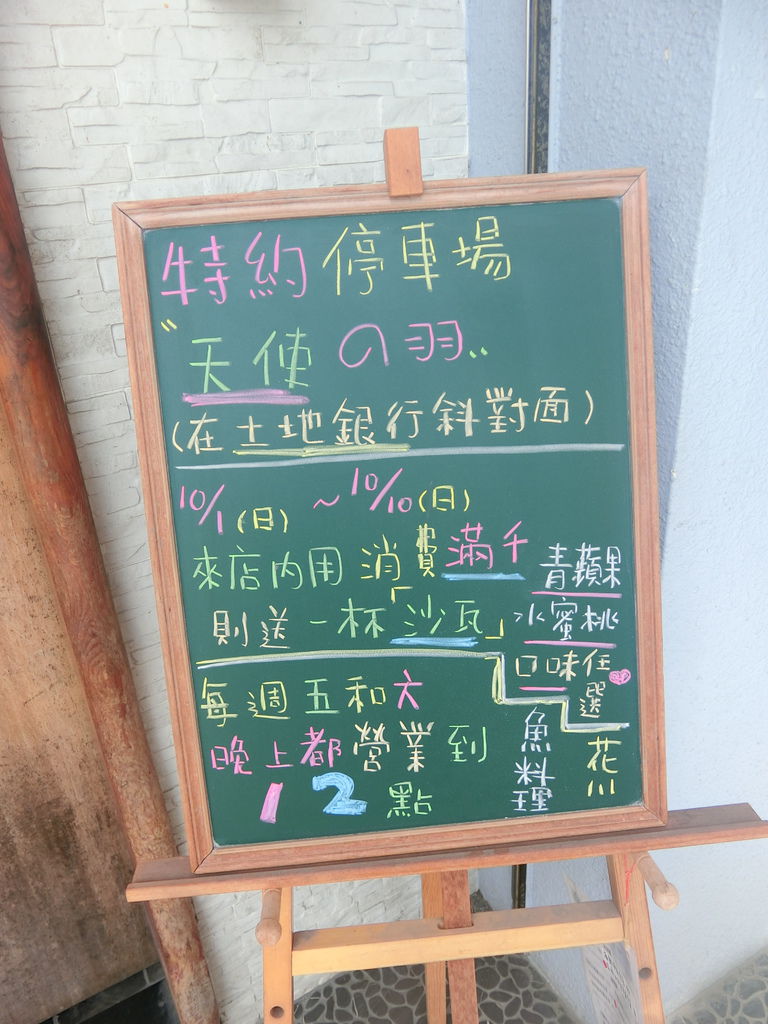 特約停車場
"天使の羽..
(在土地銀行斜對面)
10/1(日)~10/10(日)
來店內用消費滿千
則送一杯「沙瓦」
青蘋果
水蜜桃
口味任
選
每週五和六
晚上都營業到
12點
魚料理
花川